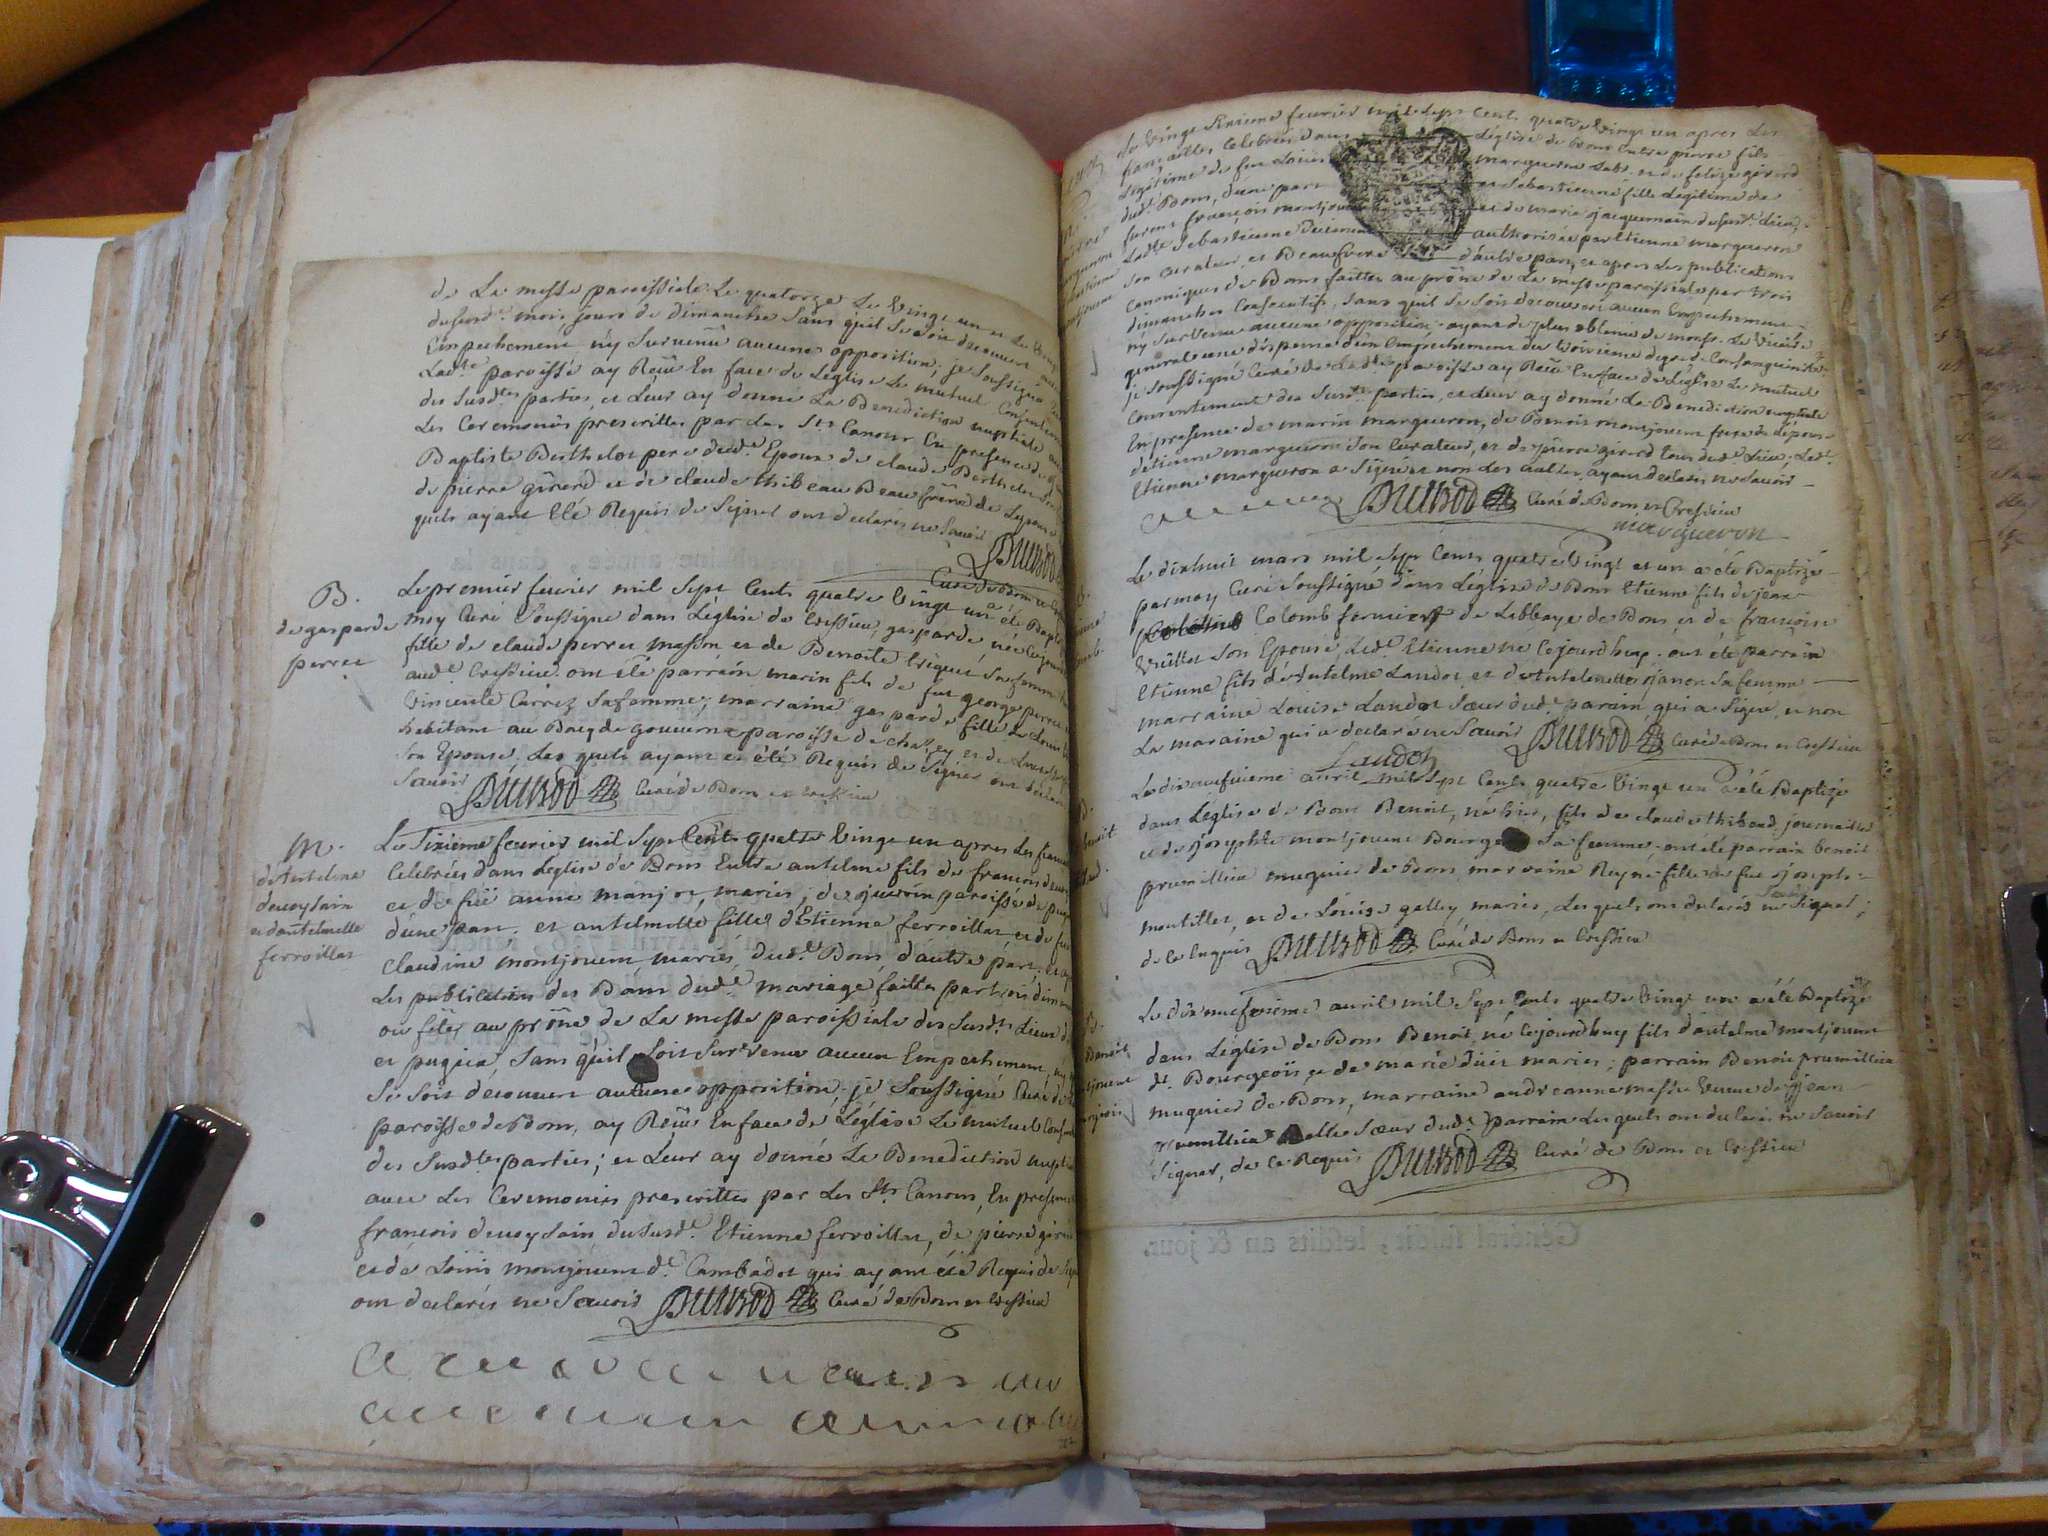 de La messe paroissiale Le quatorze Le vingt un et Le
dususd.t mois jours de dimanche sans quil se soit decouvert
Empechement ny survenu aucune opposition, je soussigné
Lad.te paroisse ay Reçu En face de Leglise Le mutuel Consentement
des susd.tes parties, et Leur ay donné La Benediction nuptiale
Les Ceremonies prescrittes par Les S.ts Canons En presence de
Baptiste Berthelot pere dud.t Epoux de claude Berthelot
de pierre girerd et de claude thibeau Beaufrere de Lepouse
quels ayant Eté Requis de Signer ont declarés ne Savoir
Curé de Bons et
B.
de gasparde
perret
Le premier fevrier mil sept Cents quatre vingt un a été Baptisé
moy Curé Soussigné dans Leglise de Cressieu, gasparde née Ce jourd
fille de claude perret masson et de Benoite triquet sa femme
aud.t Cressieu ont été parrain marin fils de feu george perret
vincente Carrez sa femme; marraine gasparde fille de Louis
habitant au paroisse de et de
son Epouse Les quels ayant été Requis de Signer ont declaré
Savoir Curé de Bons et Cressieu
M.
d'antelme
devoylain
et dantelmette
ferroillat
Le fevrier mil sept Cents quatre vingt un apres Les
Celebrées dans Leglise de Bons Entre antelme fils de francois
et de feü anne manjot, mariés, de paroisse de
d'une part. et antelmette fille d'Etienne ferroillat et de feu
Claudine montjouvent mariés dud.t Bons d'autre part, et
Les publications des Bans dud.t mariage faittes par trois dim
ou fêtes au prône de La messe paroissiale des susd.ts Lieux de
et pugieu, sans quil soit survenu aucun Empechement, ny
se soit decouvert aucune opposition, je soussigné Curé de
paroisse de Bons, ay Reçu En face de Leglise Le mutuel Cons
des susd.tes parties; et Leur ay donné La Benediction nupt
avec Les Ceremonies prescrittes par Les S.ts Canons, En presence
francois devoylain dusud.t Etienne ferroillat, de pierre
et de Loüis montjouvent d.t Cambadot qui ayant été Requis de
ont declarés ne Savoir Curé de Bons et Cressieu
Le vingt fevrier mil sept Cents quatre vingt un apres Les
fiançailles Celebrées dans Leglise de Bons Entre pierre fils
Legitime de feu Loüis margueron et de girerd
dud.t Bons, d'une part et sebastienne fille Legitime de
furent françois montjouvent et de marie jacquemain dusud.t Lieu,
Lad.te sebastienne authorisée par Etienne margueron
son curateur et Beaufrere d'autre part, et apres Les publications
Canoniques de Bans faittes au prône de La messe paroissiale par trois
dimanches Consecutifs, sans quil se soit decouvert aucun Empechement
ny survenu aucune opposition, ayant de plus obtenu de mons.r Le vicaire
general une dispense d'un Empechement du troisieme degré de Consanguinité
je soussigné Curé de Lad.te paroisse ay Reçu En face de Leglise Le mutuel
Consentement des susd.tes parties, et Leur ay donné La Benediction nuptiale
En presence de marin margueron, de Benoit montjouvent frere de Lépouse
d'etienne margueron son Curateur, et de pierre girerd tous dud.t Lieu; Led.t
Etienne margueron a Signé et non Les autres ayant declarés ne Savoir
Curé de Bons et Cressieu
margueron
Le dixhuit mars mil sept Cents quatre vingt et un a été Baptizé
par moy Curé Soussigné dans Leglise de Bons Etienne fils de jean
Colomb fermier de Labbaye de Bons et de francoise
vuillet son Epouse, Led.t Etienne né Cejourdhuy. ont été parrain
Etienne fils d'antelme Landoz et d'antelmette janon sa femme
marraine Louise Landoz sœur dud.t parain qui a Signé, et non
La maraine qui a declaré ne Savoir Curé de Bons et Cressieu
Landoz
Le dixneufvieme avril mil sept Cents quatre vingt un a été Baptizé
dans Leglise de Bons Benoit, né hier, fils de claude thibaud journalier
et de josephte montjouvent Bourgeois sa femme. ont été parrain benoit
prumillieu mugnier de Bons marraine Reyne fille de feu joseph
montillet, et de Loüise gallay, mariés, Lesquels ont declarés ne Savoir Signer;
de ce Enquis Curé de Bons et Cressieu
B.
Benoit
Le dixneufvieme avril mil sept Cents quatre vingt un a été Baptizé
dans Leglise de Bons Benoit, né Cejourdhuy fils d'antelme montjouvent
d.t Bourgeois, et de marie mariés; parrain Benoit prumillieu
mugnier de Bons, marraine andreanne masse veuve de jean
prumillieu belle sœur dud.t parrain Lesquels ont declarés ne Savoir
Signer, de Ce Requis Curé de Bons et Cressieu